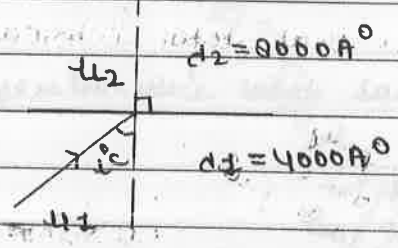 μ2 d2 = 8000A°
i°c d1 = 4000A°
μ1